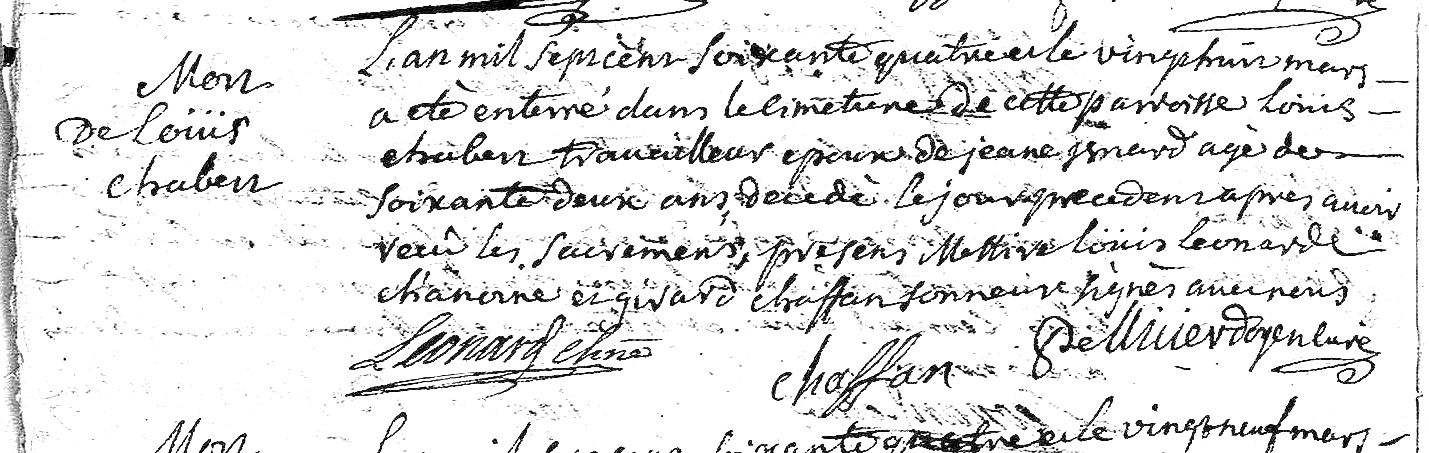 Mort
De loüis
chabert
L'an mil sept cent soixante quatre et le vingt huit mars
a eté enterré dans le simetiere de cette parroisse loüis
chabert travailleur epoux de jeane ismard agé de
soixante deux ans, decedé le jour precedent après avoir
reçû les sacremens, presens Messire loüis leonard
chanoine et girard chaffan sonneur signés avec nous
Leonard chne
chaffan
De doyen curé
Mort
quatre et le vingt neuf mars